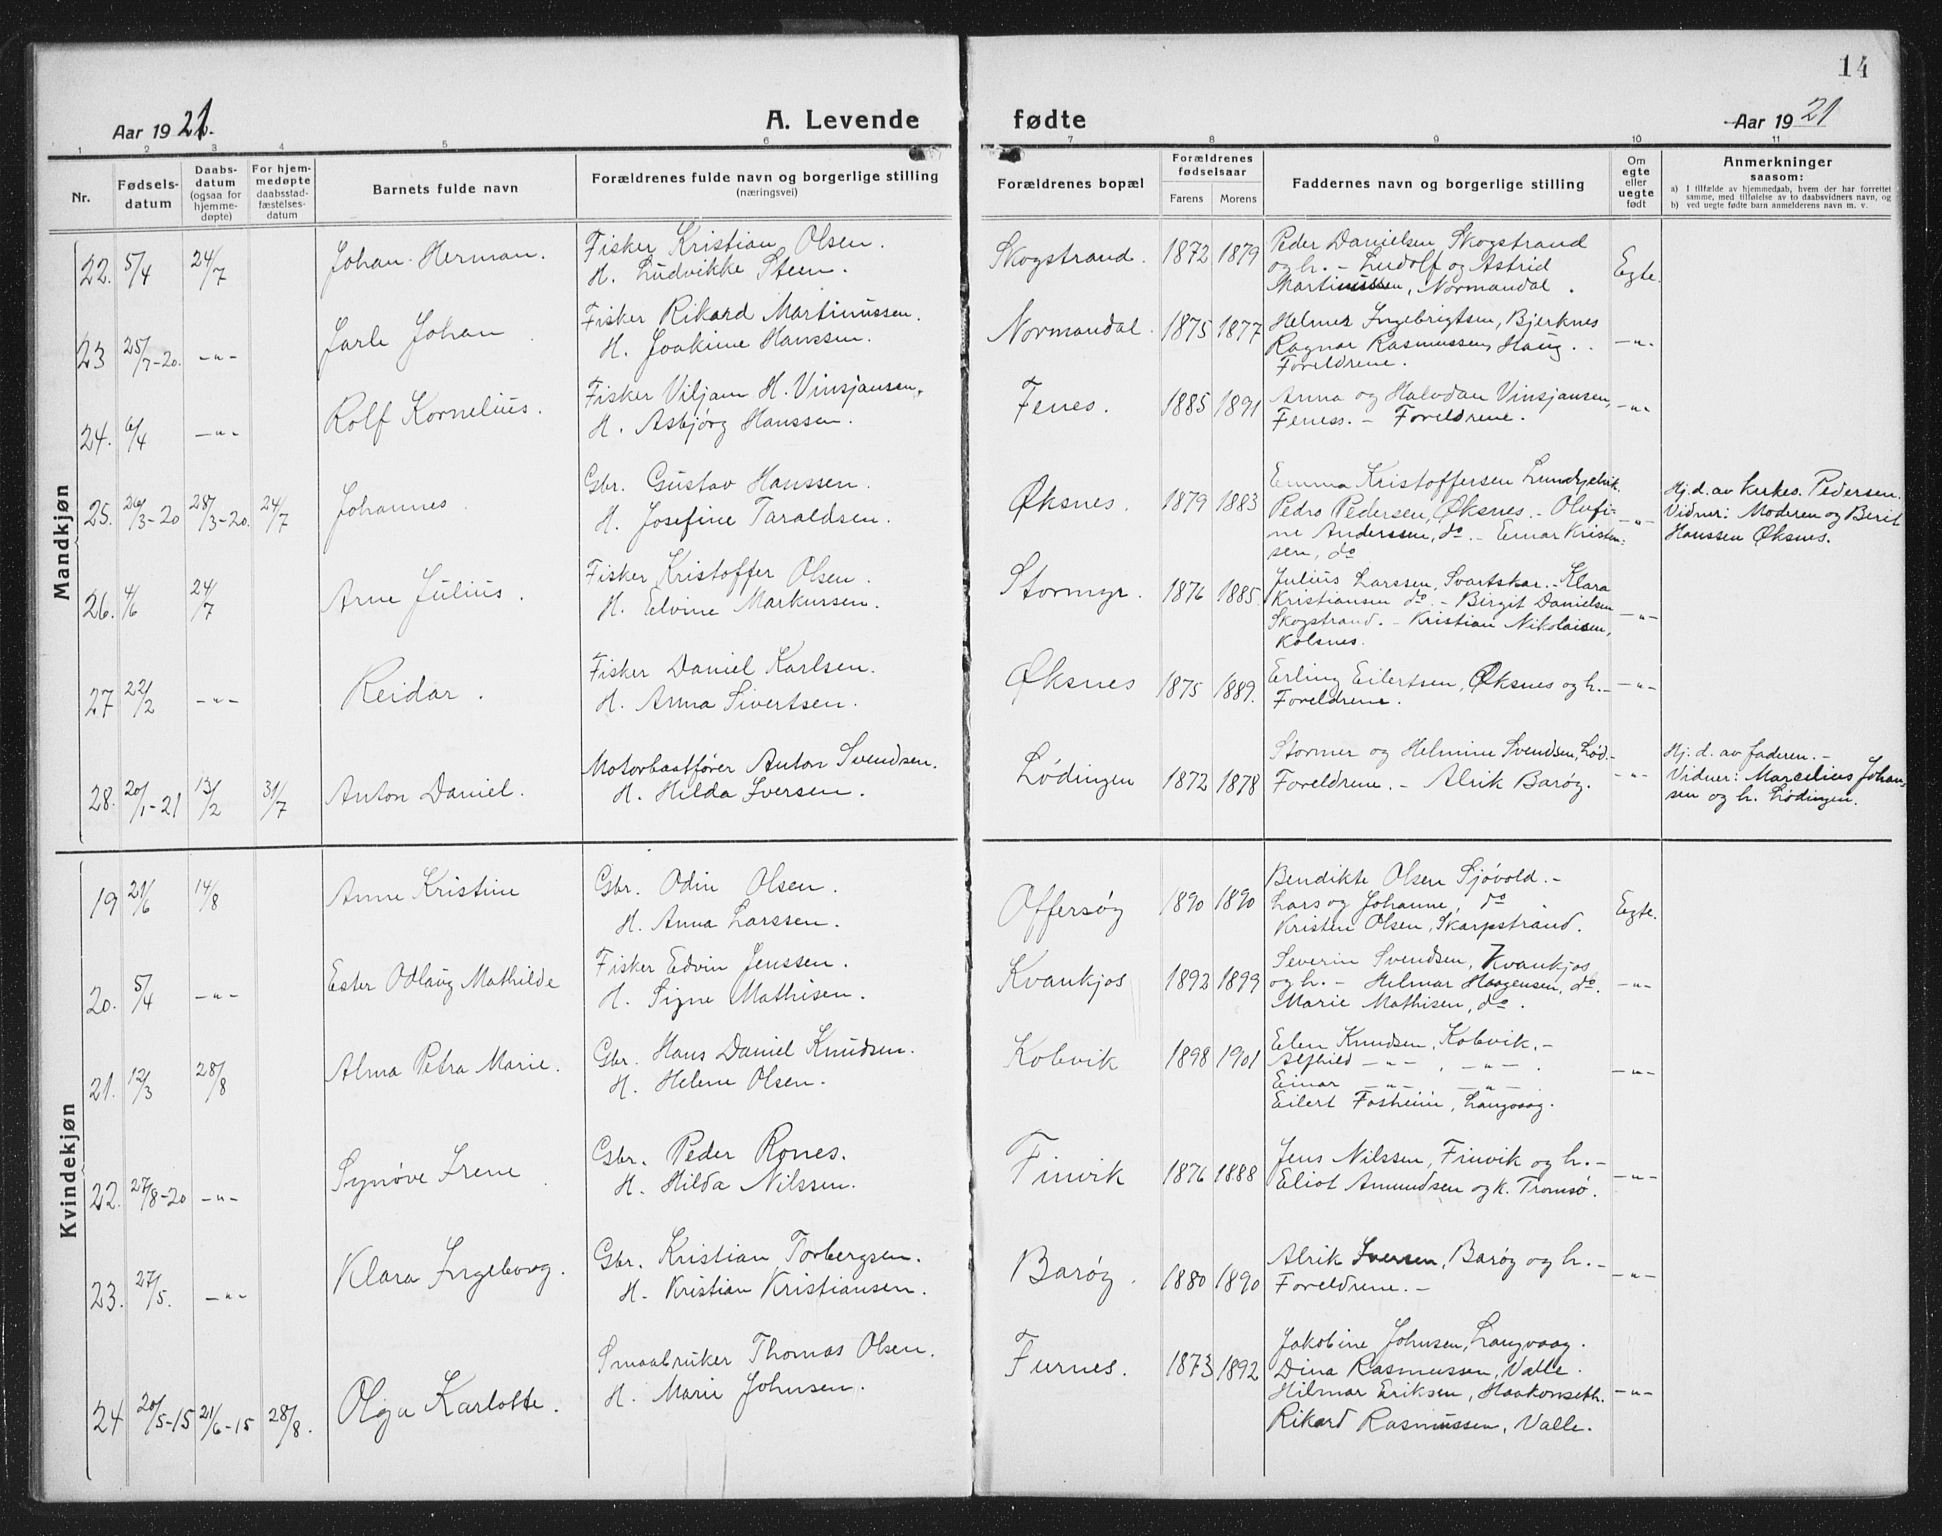 14
Aar 1921. A. Levende fødte Aar 1921
1 2 3 4 5 6 7 8 9 10 11
Nr. Fødsels-datum Daabs-datum (ogsaa for hjemme-døpte) For hjem-medøpte daabsstad-fæstelses-datum Barnets fulde navn Forældrenes fulde navn og borgerlige stilling (næringsvei) Forældrenes bopæl Forældrenes fødselsaar Farens Morens Faddernes navn og borgerlige stilling Om egte eller uegte født Anmerkninger saasom:
a) I tilfælde av hjemmedaab, hvem der har forrettet samme, med tilføielse av to daabsvidners navn, og
b) ved uegte fødte barn anmelderens navn m. v.
Mandkjøn
22. 5/4 24/7 Johan Herman. Fisker Kristian Olsen. Skogstrand. 1872 1879 Peder Danielsen, Skogstrand
H. Ludvikke Steen. og h. – Ludolf og Astrid Egte.
Martinussen, Normandal.
23 25/7-20. –"– Jarle Johan Fisker Rikard Martinussen. Normandal. 1875 1877 Helmer Ingebrigtsen, Bjerknes
H. Joakine Hanssen. Ragnar Rasmussen, Haug. –"–
Foreldrene.
24. 6/4 –"– Rolf Kornelius. Fisker Viljam H. Vinsjansen. Fenes. 1885 1891 Anna og Halvdan Vinsjansen, –"–
H. Asbjørg Hanssen. Feness. – Foreldrene.
25. 26/3-20 28/3-20. 24/7 Johannes. Gbr. Gustav Hanssen. Øksnes. 1879 1883 Emma Kristoffersen Lundkjelvik. Hj. d. av kirkes. Pedersen.
H. Josefine Taraldsen. Pedro Pedersen, Øksnes. – Olufi- –"– Vidner: Moderen og Berit
ne Anderssen, do. – Einar Kristen- Hanssen Øksnes.
sen, do
26. 4/6 24/7 Arne Julius. Fisker Kristoffer Olsen. Stormyr. 1876 1885. Julius Larssen, Svartskar. – Klara
H. Elvine Markussen. Kristiansen do. – Birgit Danielsen –"–
Skogstrand. – Kristian Nikolaisen,
Kolsnes.
27 22/2 –"– Reidar. Fisker Daniel Karlsen. Øksnes 1875 1889. Erling Eilertsen, Øksnes og h. – –"–
H. Anna Sivertsen. Foreldrene.
28. 20/1-21 13/2 31/7 Anton Daniel. Motorbaatfører Anton Svendsen. Lødingen 1872 1878 Størmer og Helmine Svendsen, Lød.- –"– Hj. d. av faderen. –
H. Hilda Iversen. Foreldrene. – Alrik Barøg. Vidner: Marcelius Johan-
sen og h. Lødingen.
Kvindekjøn
19 21/6 14/8 Anne Kristine Gbr. Odin Olsen. Offersøg 1890 1890 Bendikte Olsen Sjøvold. –
H. Anna Larssen. Lars og Johanne, do Egte.
Kristen Olsen, Skarpstrand.
20. 5/4 –"– Ester Odlaug Mathilde Fisker Edvin Jenssen. Kvankjos 1892 1899 Severin Svendsen, Kvankjos
H. Signe Mathisen. og h. – Helmar Haagensen, do. –"–
Marie Mathisen, do.
21. 12/3 28/8 Alma Petra Marie. Gbr. Hans Daniel Knudsen. Kobvik 1898 1901 Elen Knudsen, Kobvik. –
H. Helene Olsen. Alfhild –"– , –"– .
Einar –"– . –"– . –"–
Eilert Fosheim, Langvaag.
22. 27/8-20 –"– Synøve Irene Gbr. Peder Rones. Finvik 1876 1888 Jens Nilssen, Finvik og h. –
H. Hilda Nilssen. Eliot Amundsen og k. Tromsø. –"–
23. 27/5. –"– Klara Ingeborg. Gbr. Kristian Torbergsen. Barøg. 1880 1890 Alrik Iversen, Barøg og h. – –"–
H. Kristian Kristiansen. Foreldrene. –
24 20/5-15 21/6-15 28/8. Olga Karlotte. Smaabruker Thomas Olsen. Furnes. 1873 1892 Jakobine Johnsen, Langvaag.
H. Marie Johnsen. Dina Rasmussen, Valle.
Hilmar Eriksen, Haakonseth. –"–
Rikard Rasmussen, Valle.